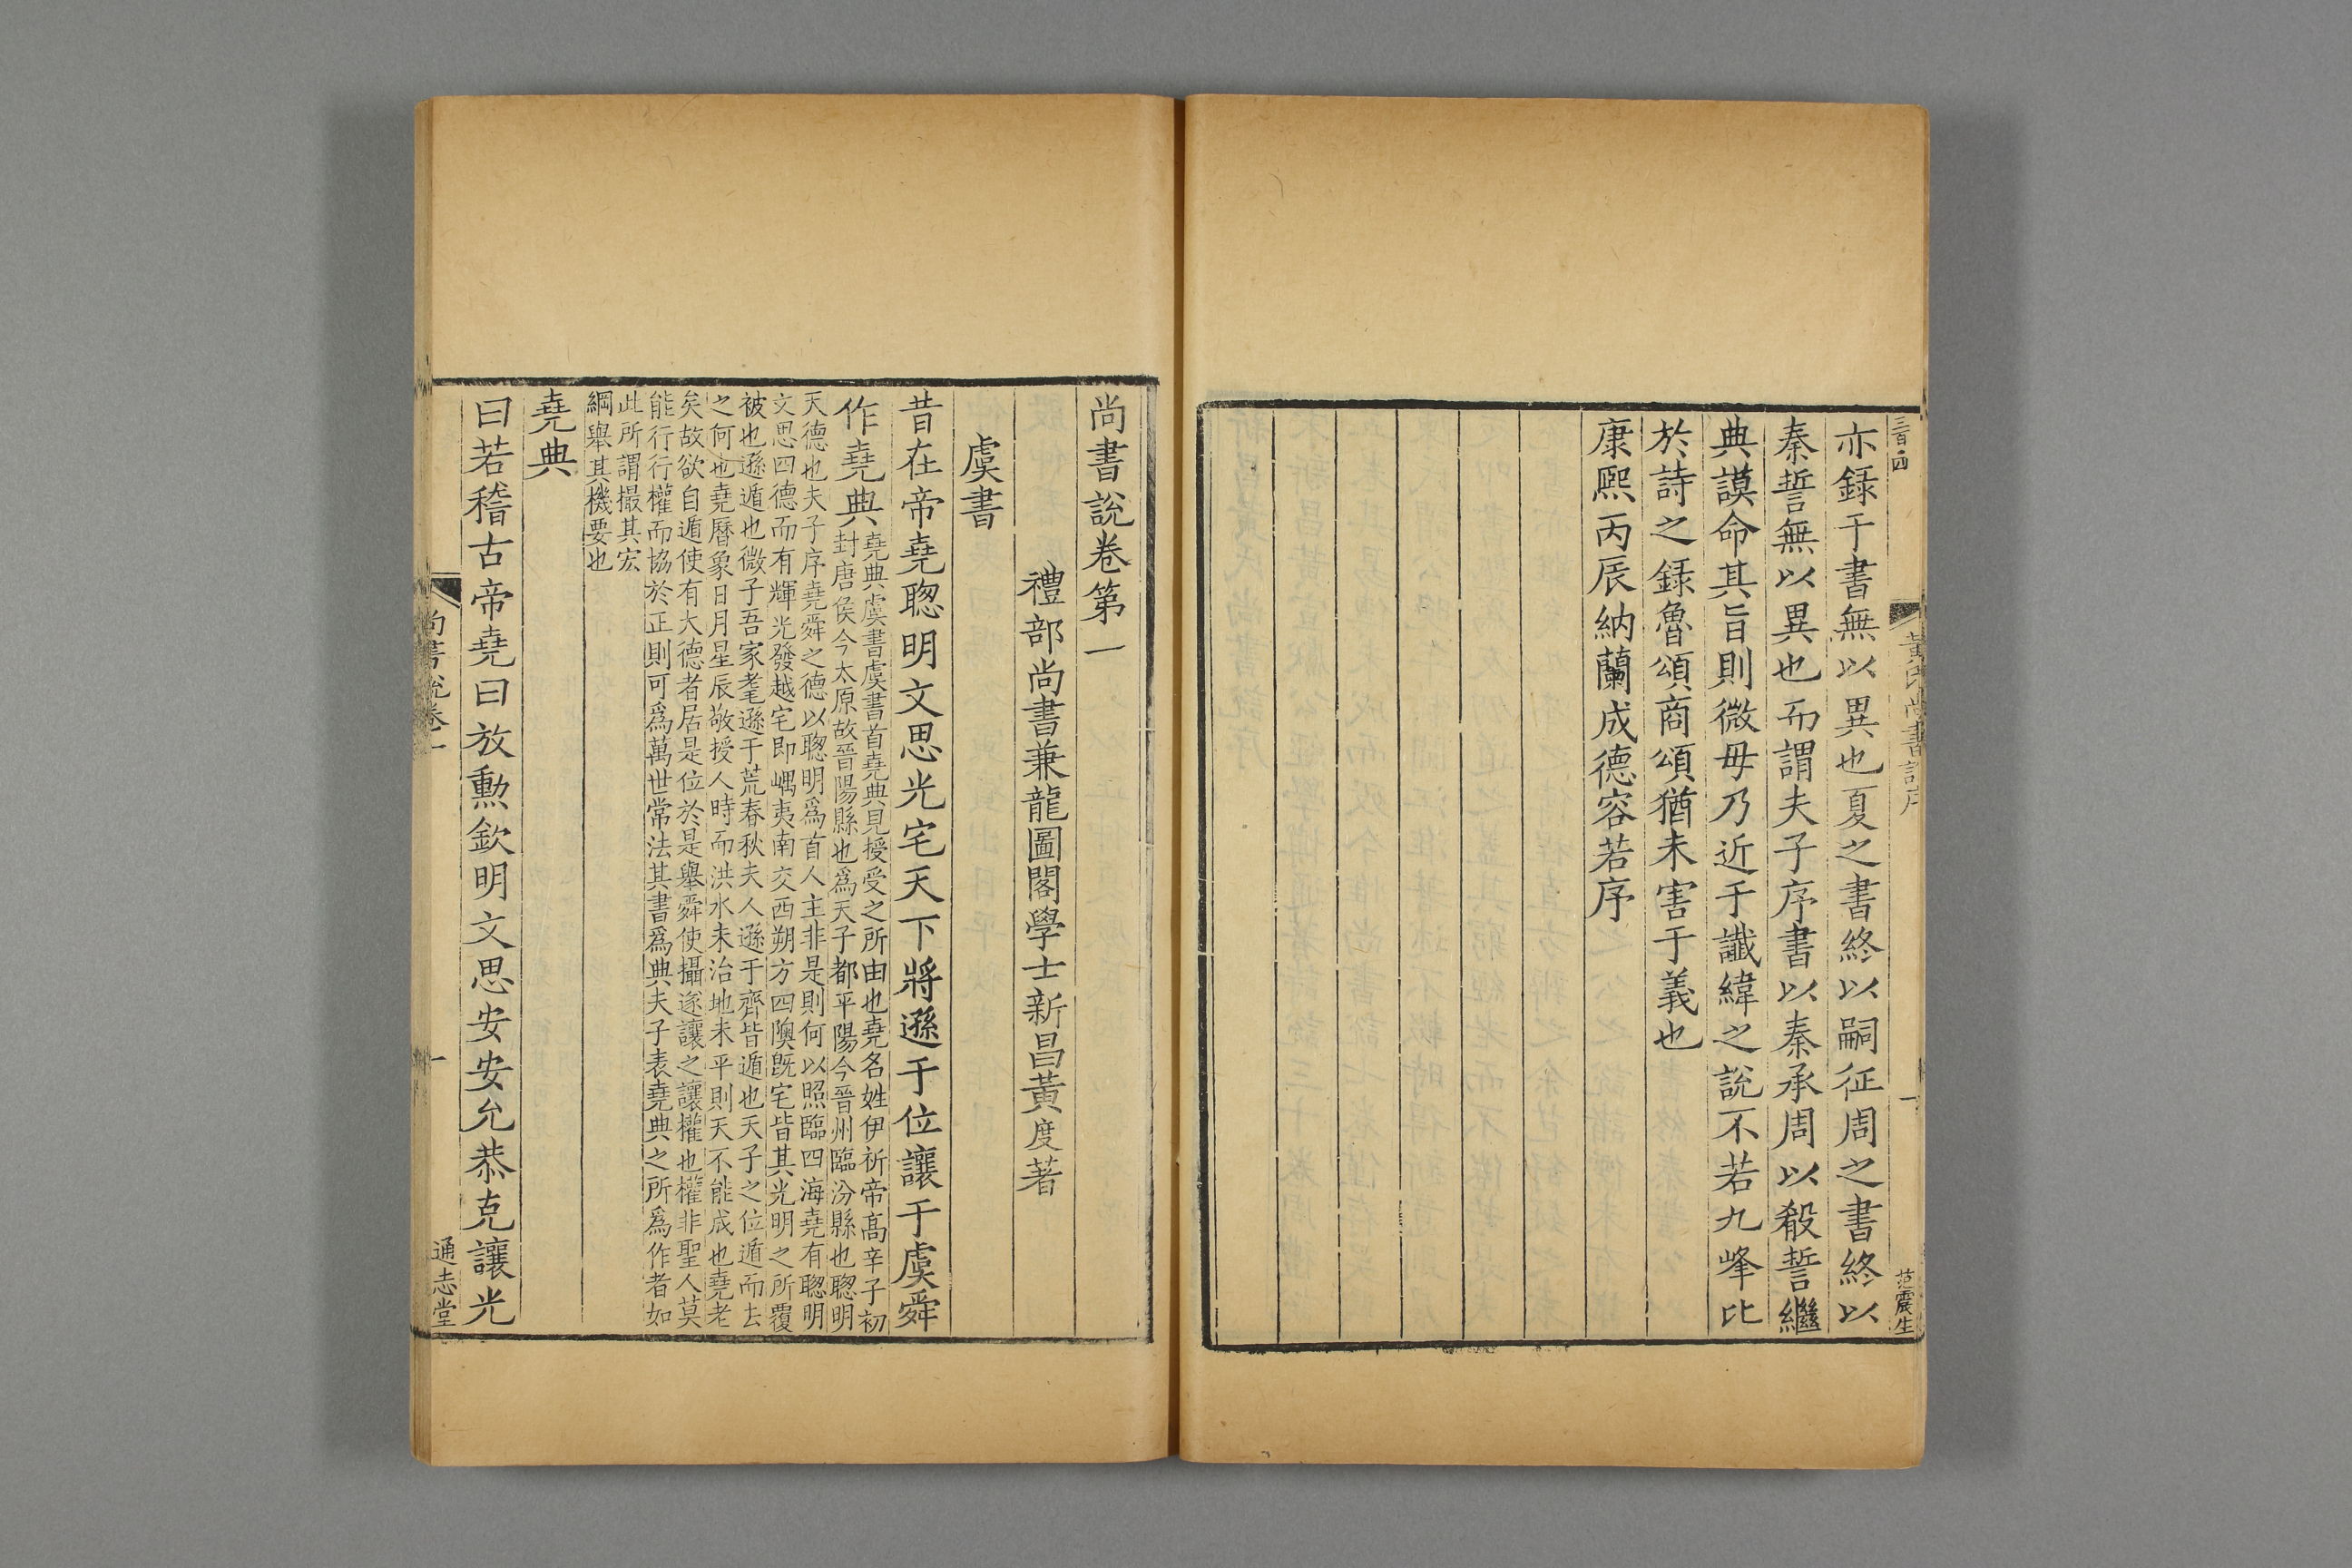 三百四
黃氏尚書說序
一
范震生
亦録于書無以異也夏之書終以嗣征周之書終以
秦誓無以異也而謂夫子序書以秦承周以殽誓繼
典謨命其旨則微毋乃近于讖緯之說不若九峰比
於詩之録魯頌商頌猶未害于義也
康熙丙辰納蘭成德容若序
尚書說卷第一
禮部尚書兼龍圖閣學士新昌黃度著
虞書
昔在帝堯聰明文思光宅天下將遜于位讓于虞舜
作堯典
堯典虞書虞書首堯典見授受之所由也堯名姓伊祈帝高辛子初
封唐侯今太原故晉陽縣也爲天子都平陽今晉州臨汾縣也聰明
天德也夫子序堯舜之德以聰明爲首人主非是則何以照臨四海堯有聰明
文思四德而有輝光發越宅即嵎夷南交西朔方四隩既宅皆其光明之所覆
被也遜遁也微子吾家耄遜于荒春秋夫人遜于齊皆遁也天子之位遁而去
之何也堯曆象日月星辰敬授人時而洪水未治地未平則天不能成也堯老
矣故欲自遁使有大德者居是位於是舉舜使攝遂讓之讓權也權非聖人莫
能行行權而協於正則可爲萬世常法其書爲典夫子表堯典之所爲作者如
此所謂撮其宏
綱舉其機要也
堯典
曰若稽古帝堯曰放勳欽明文思安安允恭克讓光
尚書說卷一
一
通志堂